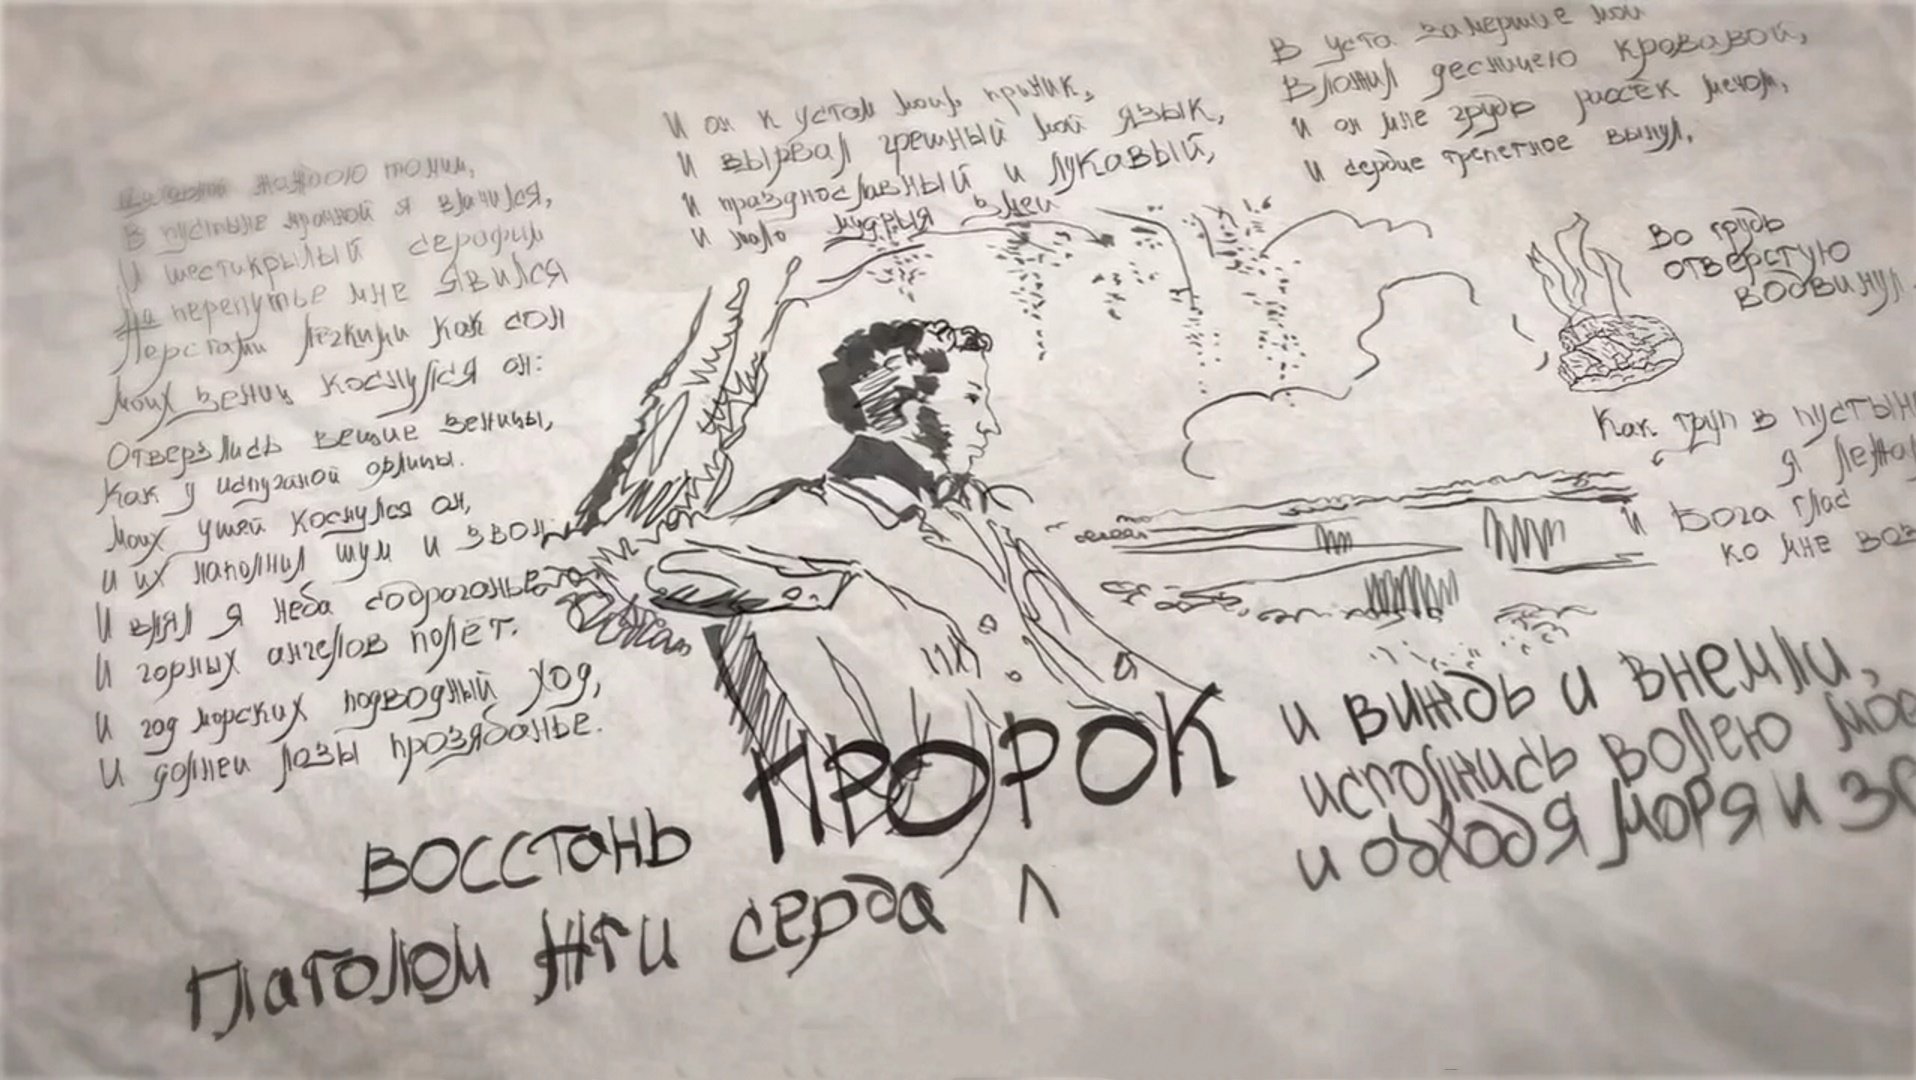 жаждою томим,
В пустыне мрачной я влачился,
И шестикрылый серафим
На перепутье мне явился
Перстами лёгкими как сон
Моих зениц коснулся он:
Отверзлись вещие зеницы,
Как у испуганой орлицы.
Моих ушей коснулся он,
и их наполнил шум и звон
И внял я неба содроганье
И горных ангелов полёт.
И гад морских подводный ход,
И долней лозы прозябанье.
И он к устам моим приник,
И вырвал грешный мой язык,
И празднословный и лукавый,
И жало мудрыя змеи
В уста замершие мои
Вложил десницею кровавой,
И он мне грудь рассёк мечом,
И сердце трепетное вынул,
Во грудь
отверстую
водвинул
Как труп в пустын
я лежа
И Бога глас
ко мне воз
восстань ПРОРОК
и виждь и внемли,
исполнись волею мое
и обходя моря и зе
Глаголом жги серда л